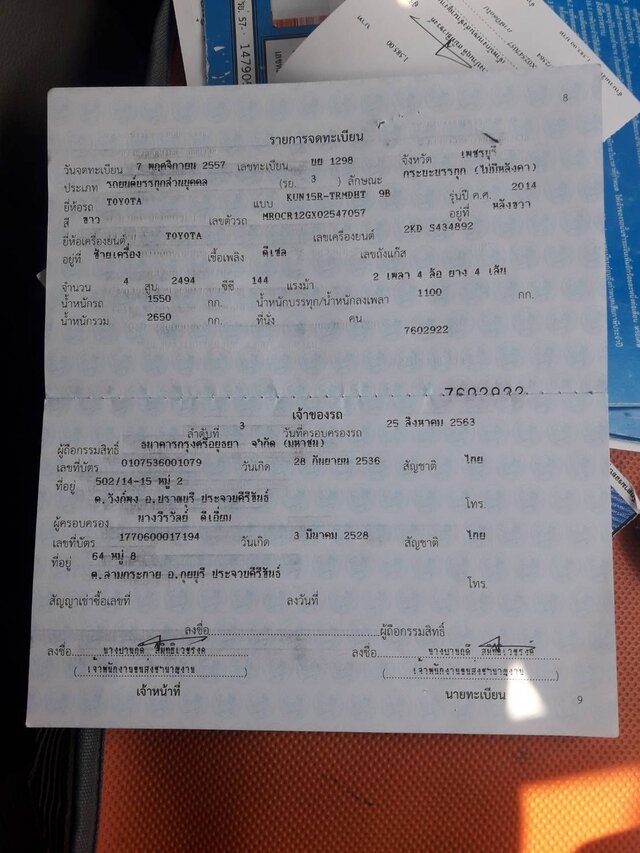 พ.ศ. 57.
1,585.00
8
รายการจดทะเบียน
วันจดทะเบียน 7 พฤศจิกายน 2557 เลขทะเบียน บย 1298 จังหวัด เพชรบุรี
ประเภท รถยนต์บรรทุกส่วนบุคคล (รย. 3 ) ลักษณะ กระบะบรรทุก (ไม่มีหลังคา)
ยี่ห้อรถ TOYOTA แบบ KUN15R-TRMDHT 9B รุ่นปี ค.ศ. 2014
สี ขาว เลขตัวรถ MROCR12GX02547057 อยู่ที่ หลังขวา
ยี่ห้อเครื่องยนต์ TOYOTA เลขเครื่องยนต์ 2KD S434892
อยู่ที่ ซ้ายเครื่อง เชื้อเพลิง ดีเซล เลขถังแก๊ส
จำนวน 4 สูบ 2494 ซีซี 144 แรงม้า 2 เพลา 4 ล้อ ยาง 4 เส้น
น้ำหนักรถ 1550 กก. น้ำหนักบรรทุก/น้ำหนักลงเพลา 1100 กก.
น้ำหนักรวม 2650 กก. ที่นั่ง คน
7602922
7602922
เจ้าของรถ
ลำดับที่ 3 วันที่ครอบครองรถ 25 สิงหาคม 2563
ผู้ถือกรรมสิทธิ์ ธนาคารกรุงศรีอยุธยา จำกัด (มหาชน)
เลขที่บัตร 0107536001079 วันเกิด 28 กันยายน 2536 สัญชาติ ไทย
ที่อยู่ 502/14-15 หมู่ 2
ต.วังก์พง อ.ปราณบุรี ประจวบคีรีขันธ์ โทร.
ผู้ครอบครอง นางวีรวัลย์ ดีเอี่ยม
เลขที่บัตร 1770600017194 วันเกิด 3 มีนาคม 2528 สัญชาติ ไทย
ที่อยู่ 64 หมู่ 8
ต.สามกระทาย อ.กุยบุรี ประจวบคีรีขันธ์ โทร.
สัญญาเช่าซื้อเลขที่ ลงวันที่
ลงชื่อ ผู้ถือกรรมสิทธิ์
ลงชื่อ ลงชื่อ
(เจ้าพนักงานขนส่งชำนาญงาน) (เจ้าพนักงานขนส่งชำนาญงาน)
เจ้าหน้าที่ นายทะเบียน
9